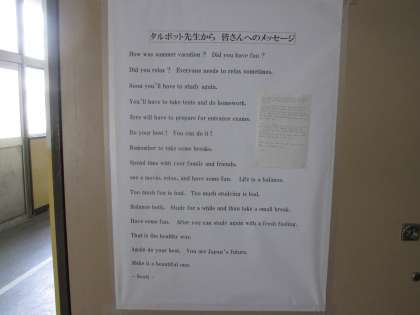 タルボット先生から 皆さんへのメッセージ
How was summer vacation? Did you have fun?
Did you relax? Everyone needs to relax sometimes.
Soon you'll have to study again.
You'll have to take tests and do homework.
3rys will have to prepare for entrance exams.
Do your best! You can do it!
Remember to take some breaks.
Spend time with your family and friends,
see a movie, relax, and have some fun. Life is a balance.
Too much fun is bad. Too much studying is bad.
Balance both. Study for a while and then take a small break.
Have some fun. After you can study again with a fresh feeling.
That is the healthy way.
Again do your best. You are Japan's future.
Make it a beautiful one.